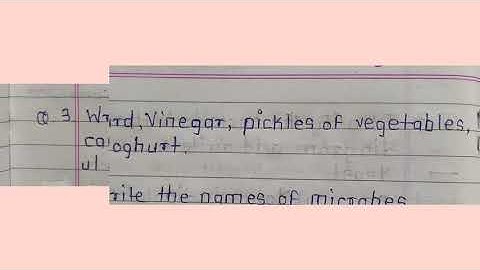 Q 3. Vinegar, pickles of vegetables,
oghurt.
rite the names of microbes